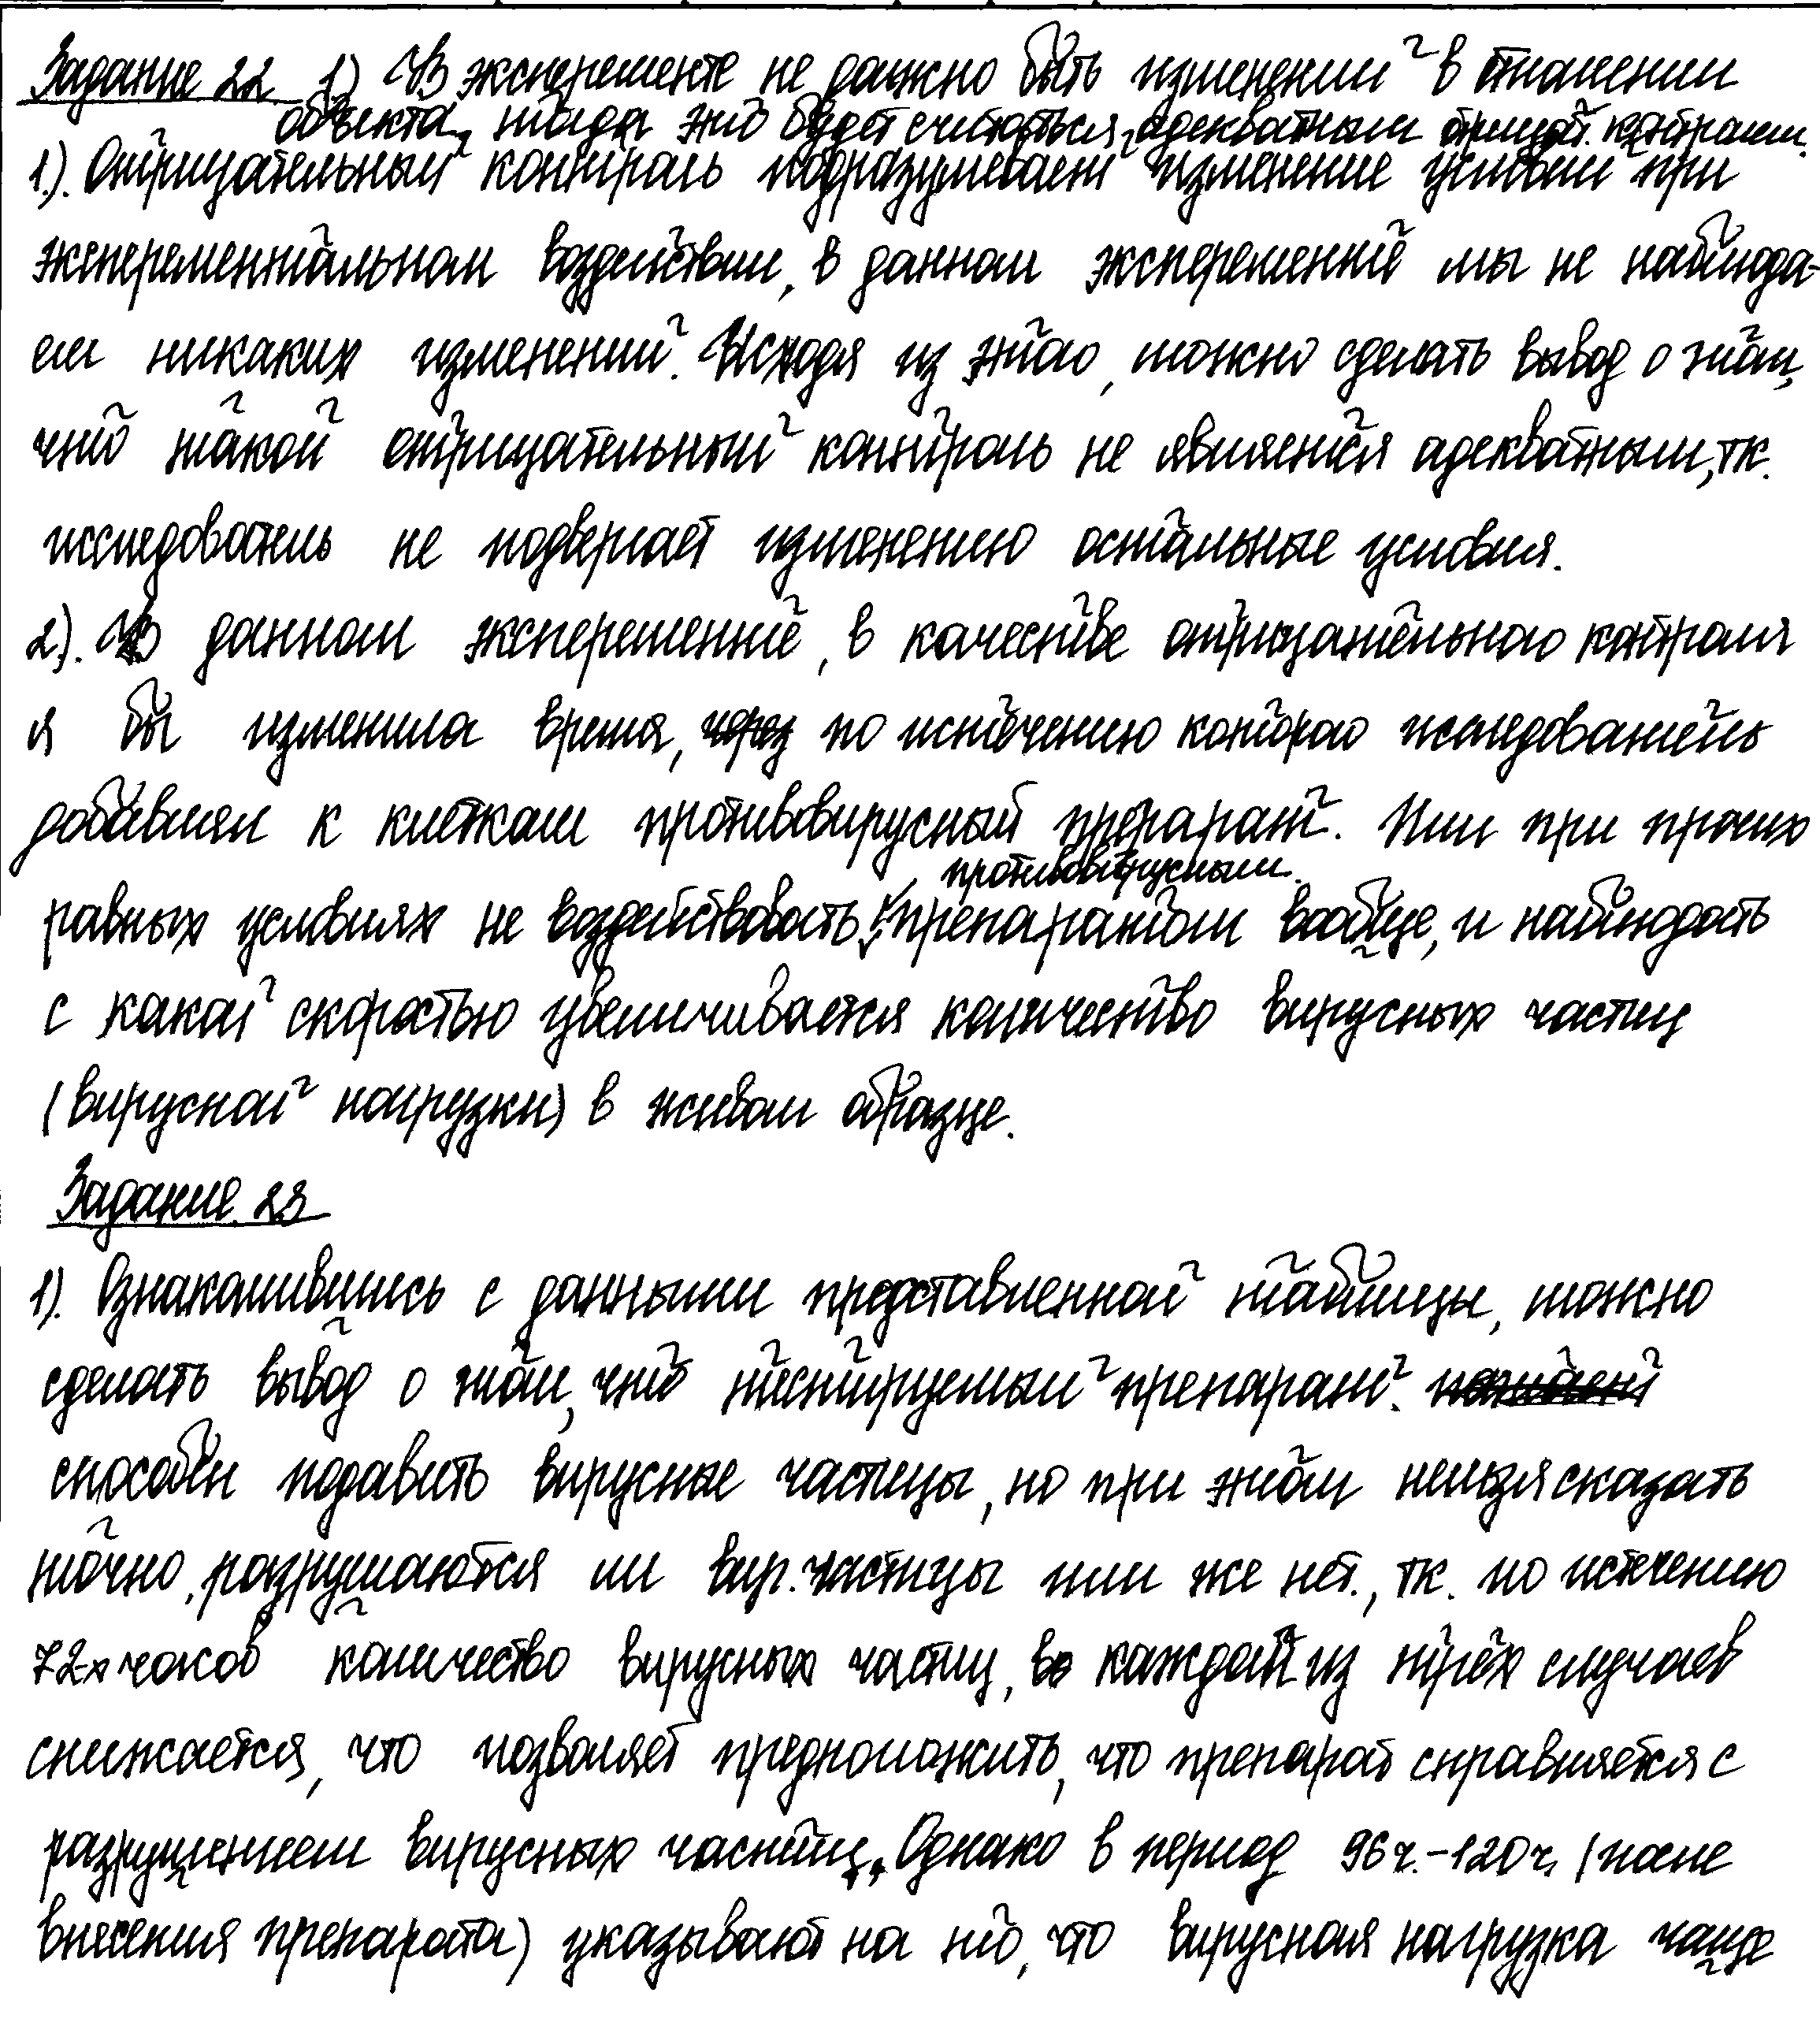 Задание 22. 1) В эксперементе не должно быть изменений в отношении
объекта, тогда это будет считаться адекватным отрицат. контролем.
1.). Отрицательный контроль подразумевает изменение условий при
эксперементальном воздействии, в данном эксперементе мы не наблюда-
ем никаких изменений. Исходя из этого, можно сделать вывод о том,
что такой отрицательный контроль не является адекватным, т.к.
исследователь не подвергает изменению остальные условия.
2). В данном эксперементе, в качестве отрицательного контроля
я бы изменила время, через по истечению которого исследователь
добавлял к клеткам противовирусный препарат. Или при прочих
противовирусным
равных условиях не воздействовать препаратом вообще, и наблюдать
с какой скоростью увеличивается количество вирусных частиц
(вирусной нагрузки) в живом образце.
Задание 23
1). Ознакомившись с данными представленной таблицы, можно
сделать вывод о том, что тестируемый препарат.
способен подавить вирусные частицы, но при этом нельзя сказать
точно, разрушаются ли вир. частицы или же нет., т.к. по истечению
72-х часов количество вирусных частиц, в каждом из трёх случаев
снижается, что позволяет предположить, что препарат справляется с
разрушением вирусных частиц. Однако в период 96ч.-120ч. (после
внесения препарата) указывают на то, что вирусная нагрузка чаще